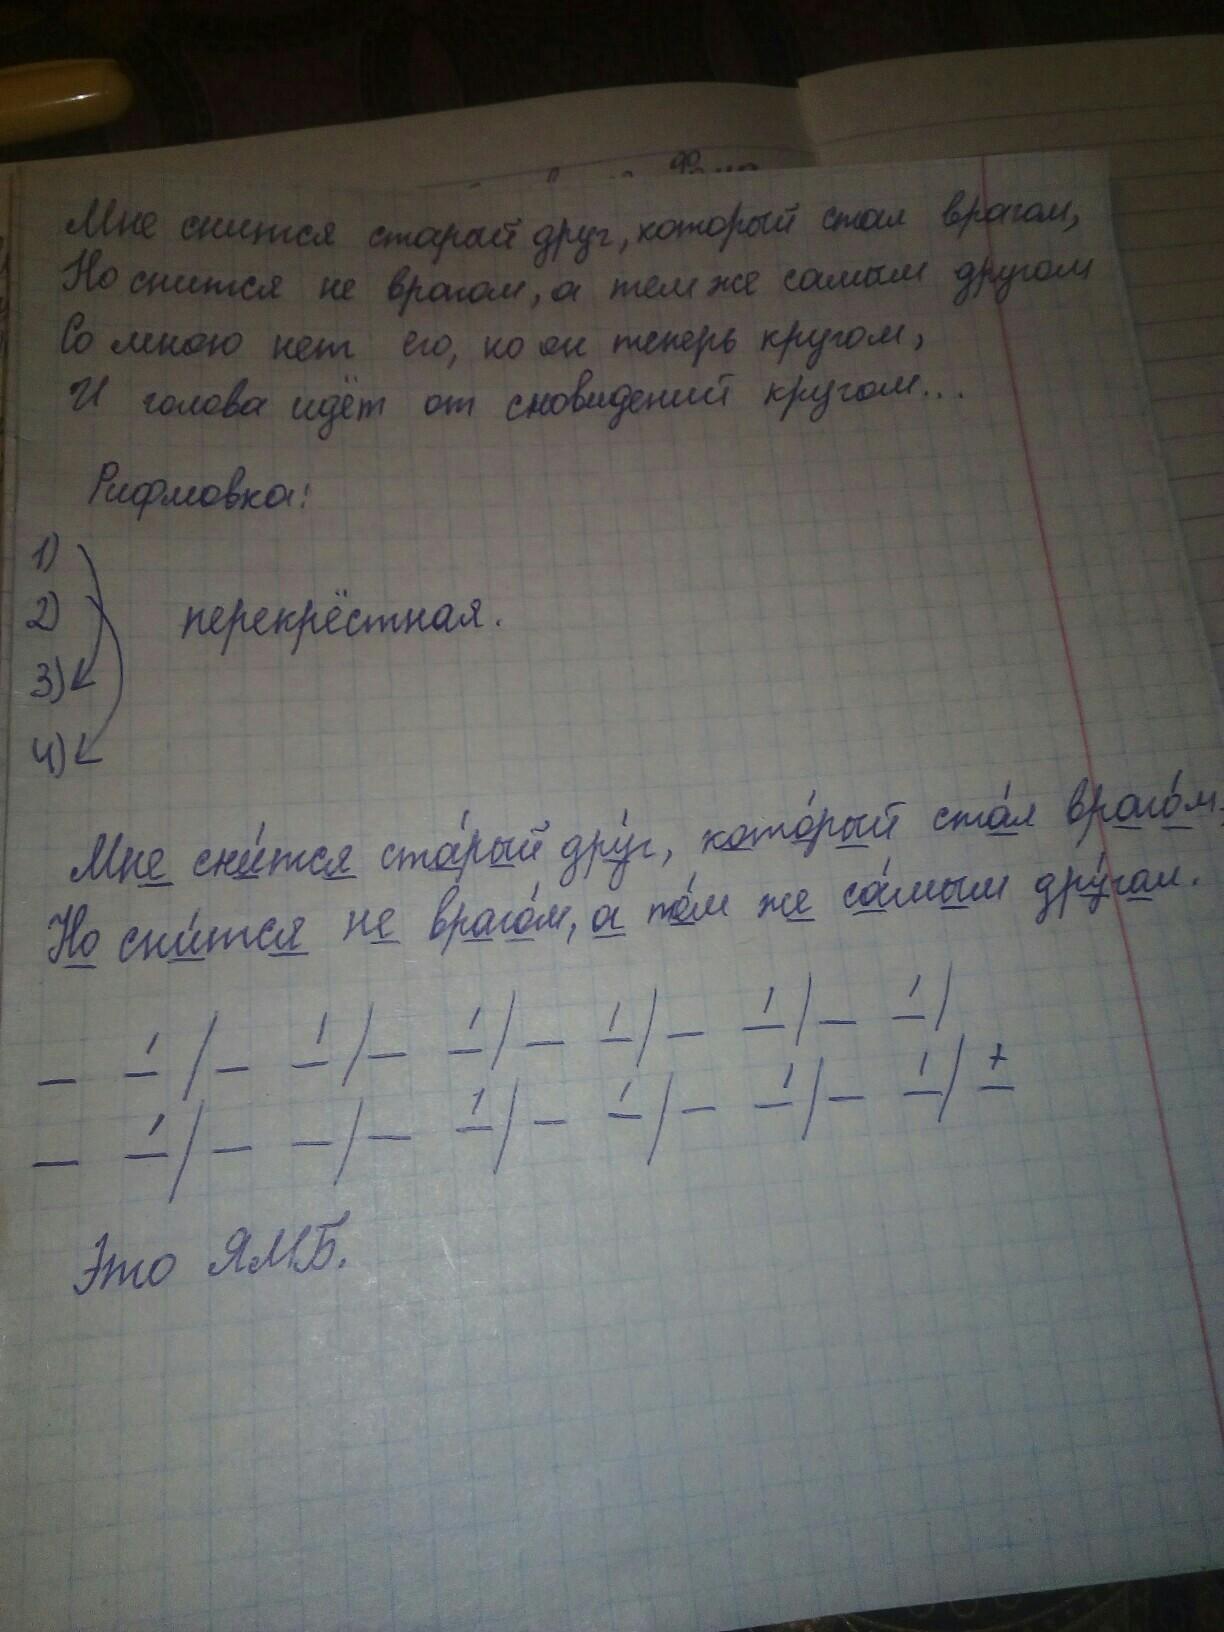 Мне снится старый друг, который стал врагом,
Но снится не врагом, а тем же самым другом
Со мною нет его, но он теперь кругом,
И голова идёт от сновидений кругом...
Рифмовка:
1)
2) перекрёстная.
3)
4)
Мне сни́тся ста́рый дру́г, кото́рый ста́л враго́м,
Но сни́тся не враго́м, а те́м же са́мым дру́гом.
Это ЯМБ.